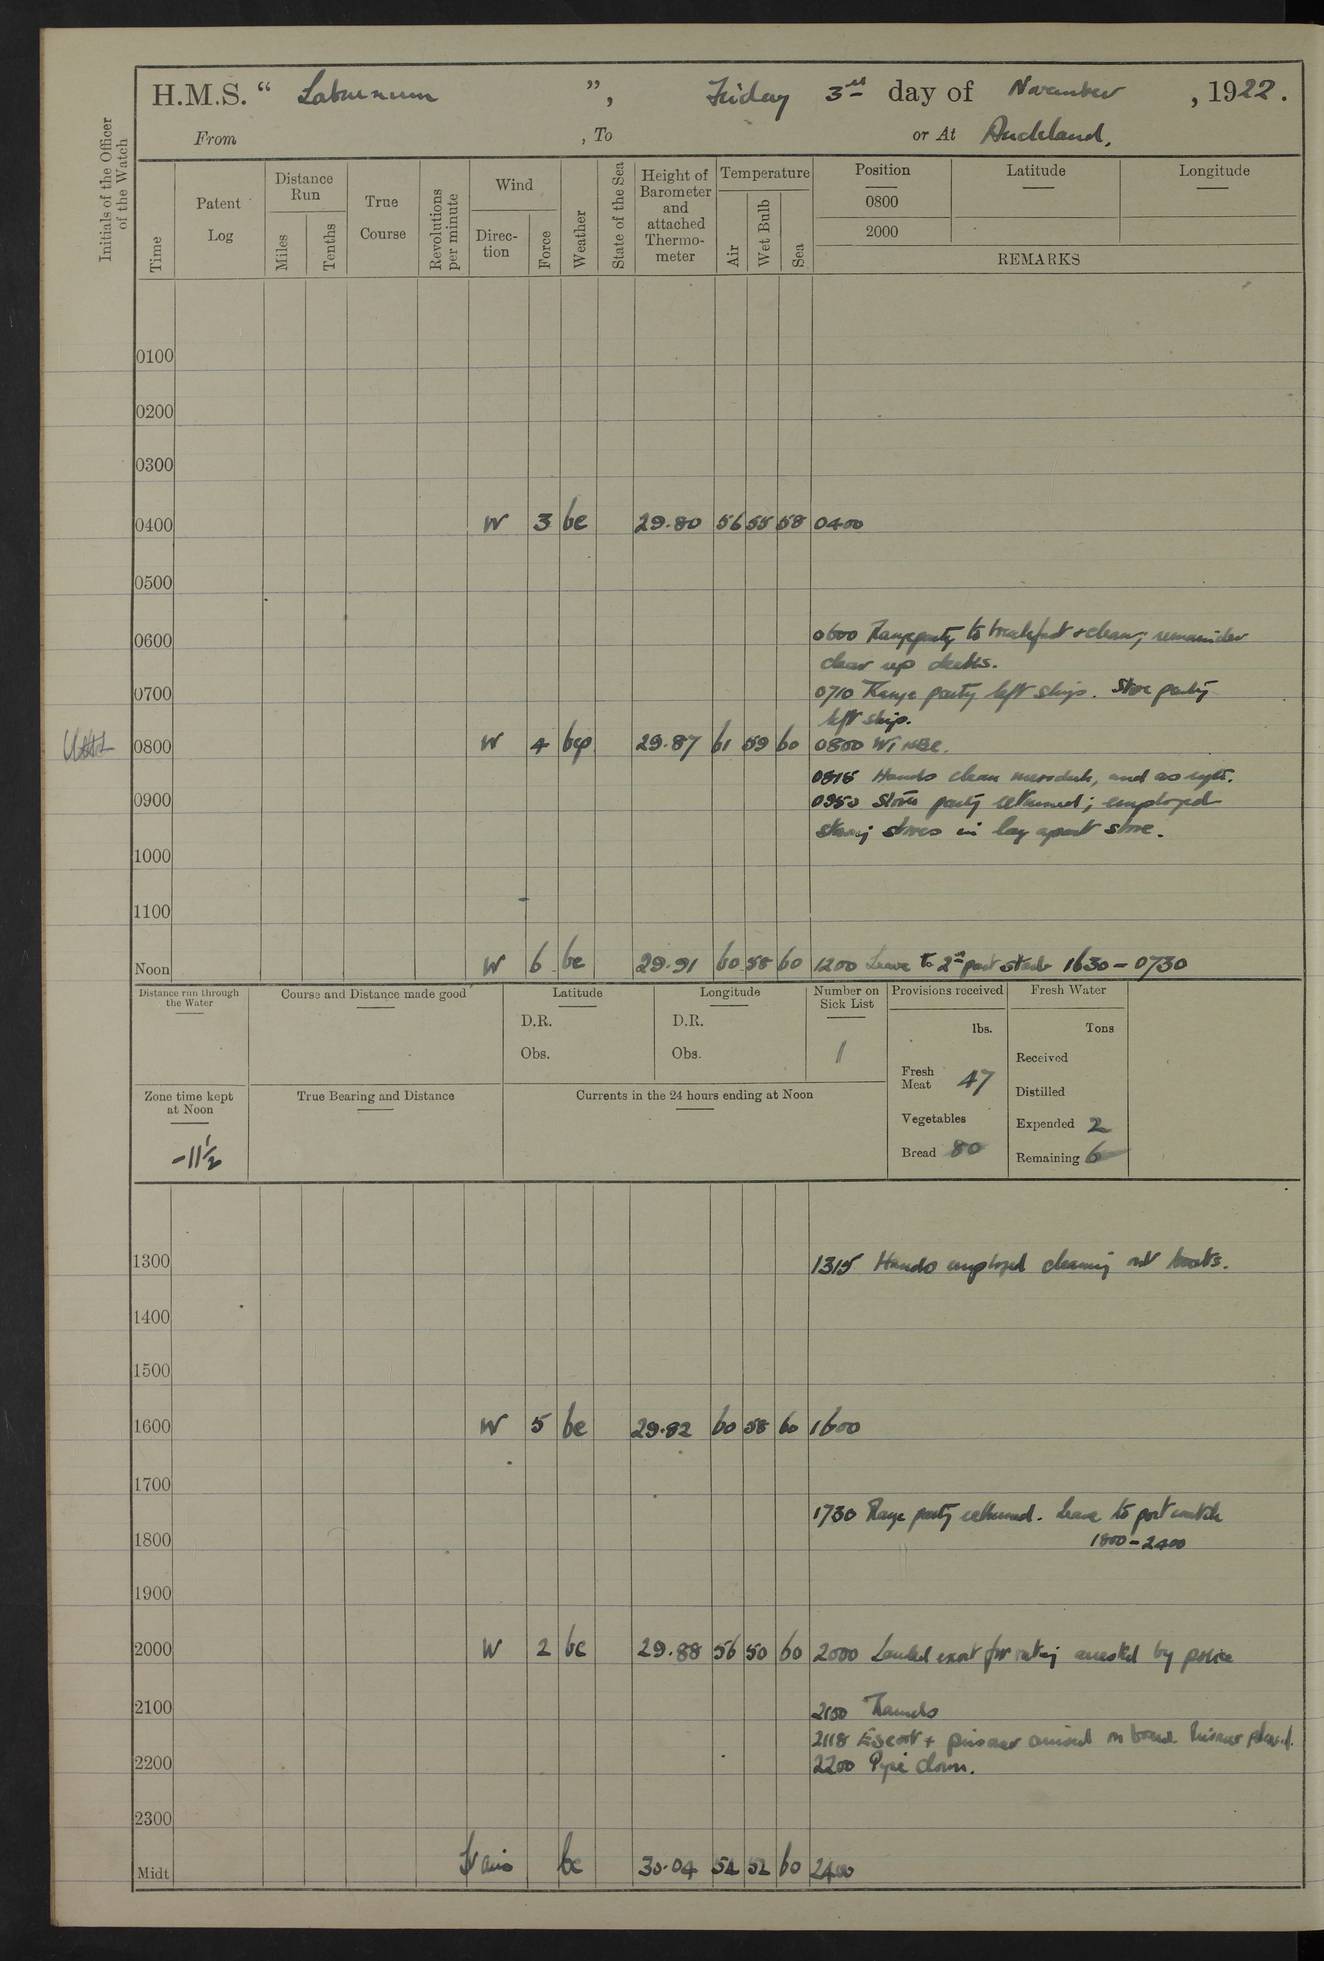 H.M.S. “ Laburnum ”, Friday 3rd day of November, 1922.
From , To or At Auckland.
Initials of the Officer of the Watch
Time
Patent Log
Distance Run
Miles
Tenths
True Course
Revolutions per minute
Wind
Direc-tion
Force
Weather
State of the Sea
Height of Barometer and attached Thermo-meter
Temperature
Air
Wet Bulb
Sea
Position
0800
2000
Latitude
Longitude
REMARKS
0100
0200
0300
0400 W 3 bc 29.80 56 55 58 0400
0500
0600 0600 Range party to breakfast + clean; remainder
clear up decks.
0700 0710 Range party left ship. Store party
left ship.
0800 W 4 bcp 29.87 61 59 60 0800
0815 Hands clean messdeck, and as reqte.
0900 0950 Store party returned; employed
stowing stores in lay apart store.
1000
1100
Noon W 6 bc 29.91 60 58 60 1200 Leave to 2nd part starbd 1630 - 0730
Distance run through the Water
Course and Distance made good
Latitude
D.R.
Obs.
Longitude
D.R.
Obs.
Number on Sick List
1
Provisions received
lbs.
Fresh Meat 47
Vegetables
Bread 80
Fresh Water
Tons
Received
Distilled
Expended 2
Remaining 6
Zone time kept at Noon
-11½
True Bearing and Distance
Currents in the 24 hours ending at Noon
1300 1315 Hands employed cleaning out boats.
1400
1500
1600 W 5 bc 29.82 60 58 60 1600
1700
1730 Range party returned. Leave to port watch
1800 1800 - 2400
1900
2000 W 2 bc 29.88 56 50 60 2000 Landed escort for rating arrested by police
2100 2100 Rounds
2118 Escort + prisoner arrived on board. Prisoner
2200 2200 Pipe down.
2300
Midt airs bc 30.04 54 52 60 2400